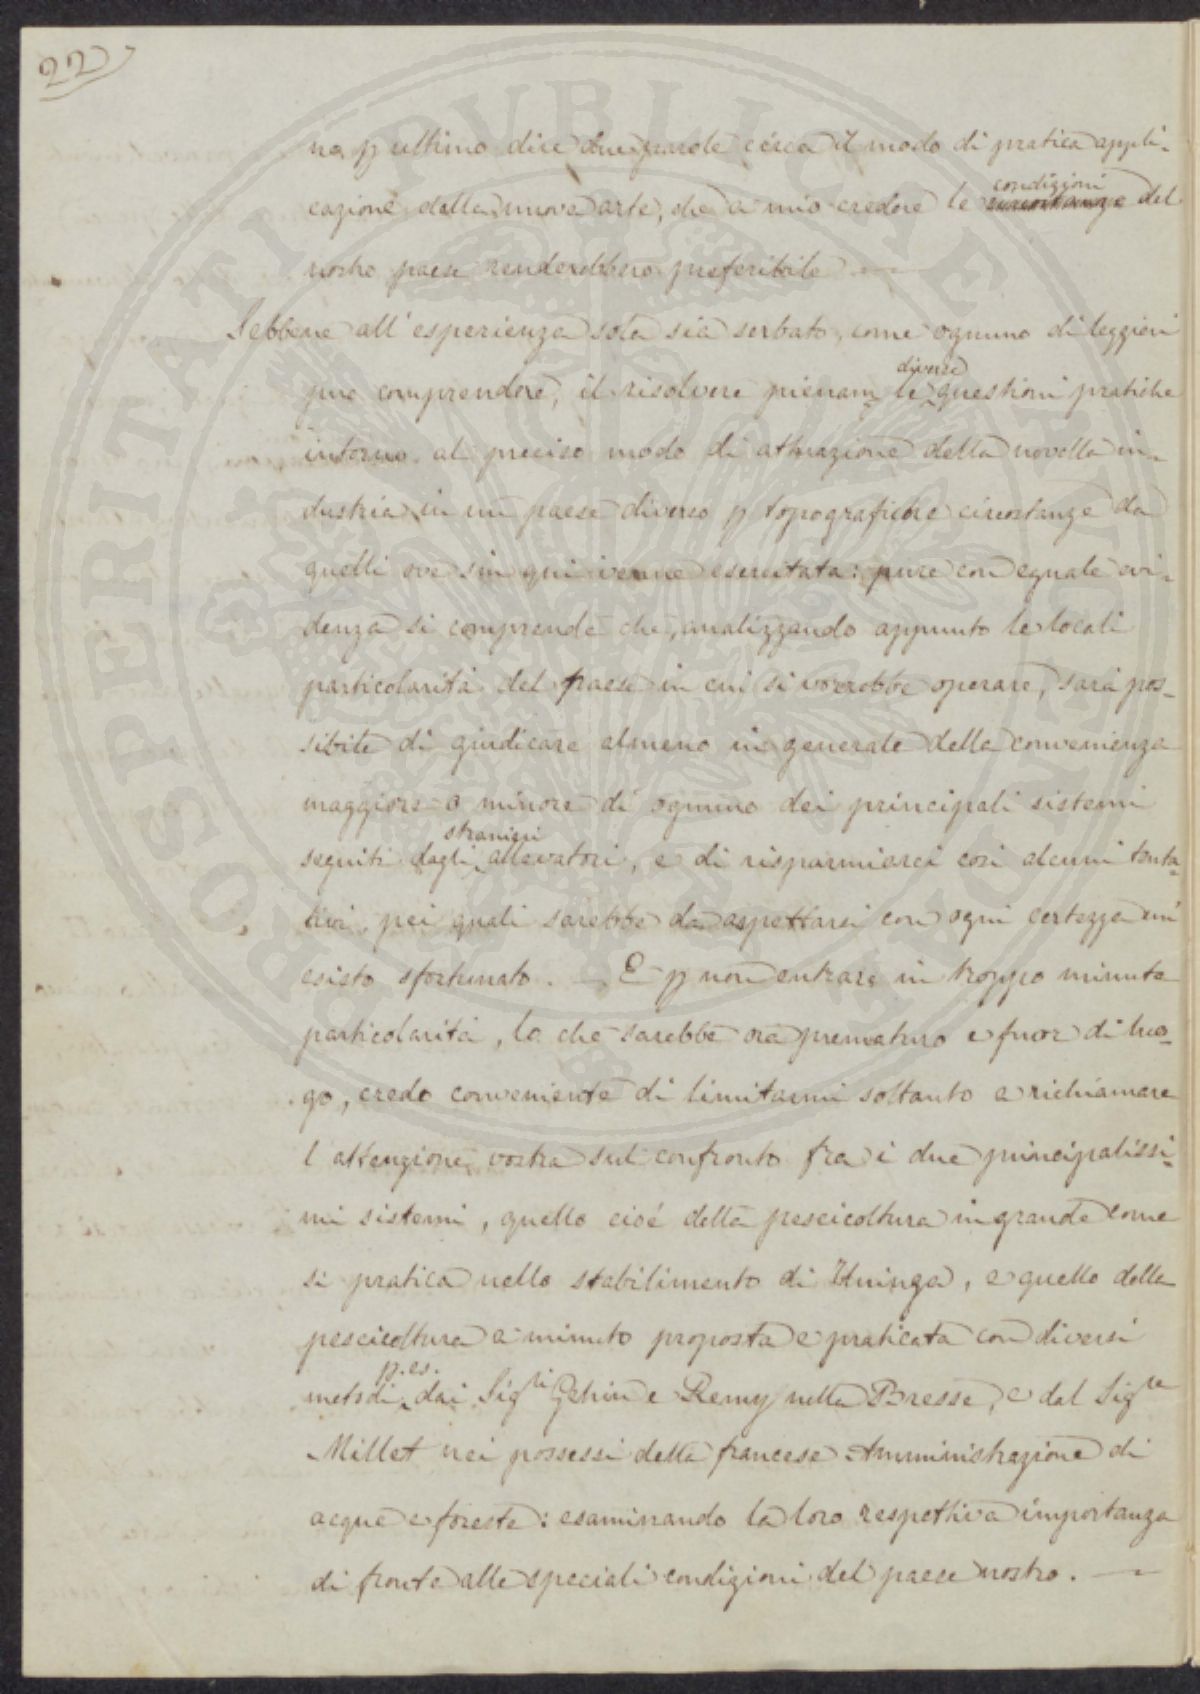 22)
na p ultimo dire due parole circa il modo di pratica appli-
cazione della nuova arte, che a mio credere le condizioni del
nostro paese renderebbero preferibile. —
Sebbene all'esperienza sola sia serbato, come ognuno di leggieri
può comprendere, il risolvere pienam. le diverse questioni pratiche
intorno al preciso modo di attuazione della novella in-
dustria in un paese diverso p topografiche circostanze da
quelli ove sin qui venne esercitata: pure con eguale evi-
denza si comprende che, analizzando appunto le locali
particolarità del paese in cui si vorrebbe operare, sarà pos-
sibile di giudicare almeno in generale della convenienza
maggiore o minore di ognuno dei principali sistemi
seguiti dagli stranieri allevatori, e di risparmiarci così alcuni tenta-
tivi, pei quali sarebbe da aspettarsi con ogni certezza un'
esisto sfortunato. — E p non entrare in troppo minute
particolarità, lo che sarebbe ora prematuro e fuor di luo-
go, credo conveniente di limitarmi soltanto a richiamare
l'attenzione vostra sul confronto fra i due principalissi-
mi sistemi, quello cioè della pescicoltura in grande come
si pratica nello stabilimento di Uninga, e quello della
pescicoltura a minuto proposta e praticata con diversi
metodi p. es. dai Sig.ri Gehin e Remy nella Bresse, e dal Sig.re
Millet nei possessi della francese Amministrazione di
acque e foreste: esaminando la loro respettiva importanza
di fronte alle speciali condizioni del paese nostro. —
PROSPERITATI PVBLICAE